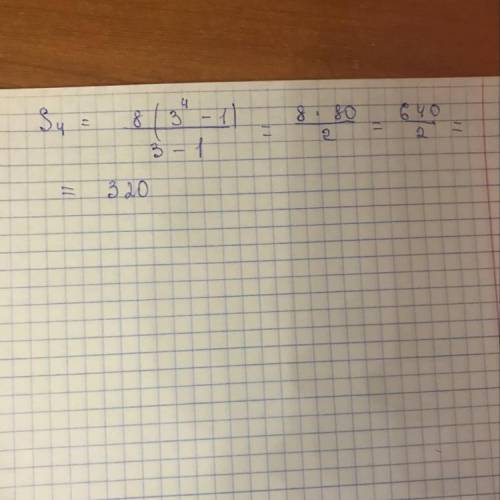 S₄ = 8(3⁴ - 1)/(3 - 1) = (8 · 80)/2 = 640/2 =
= 320